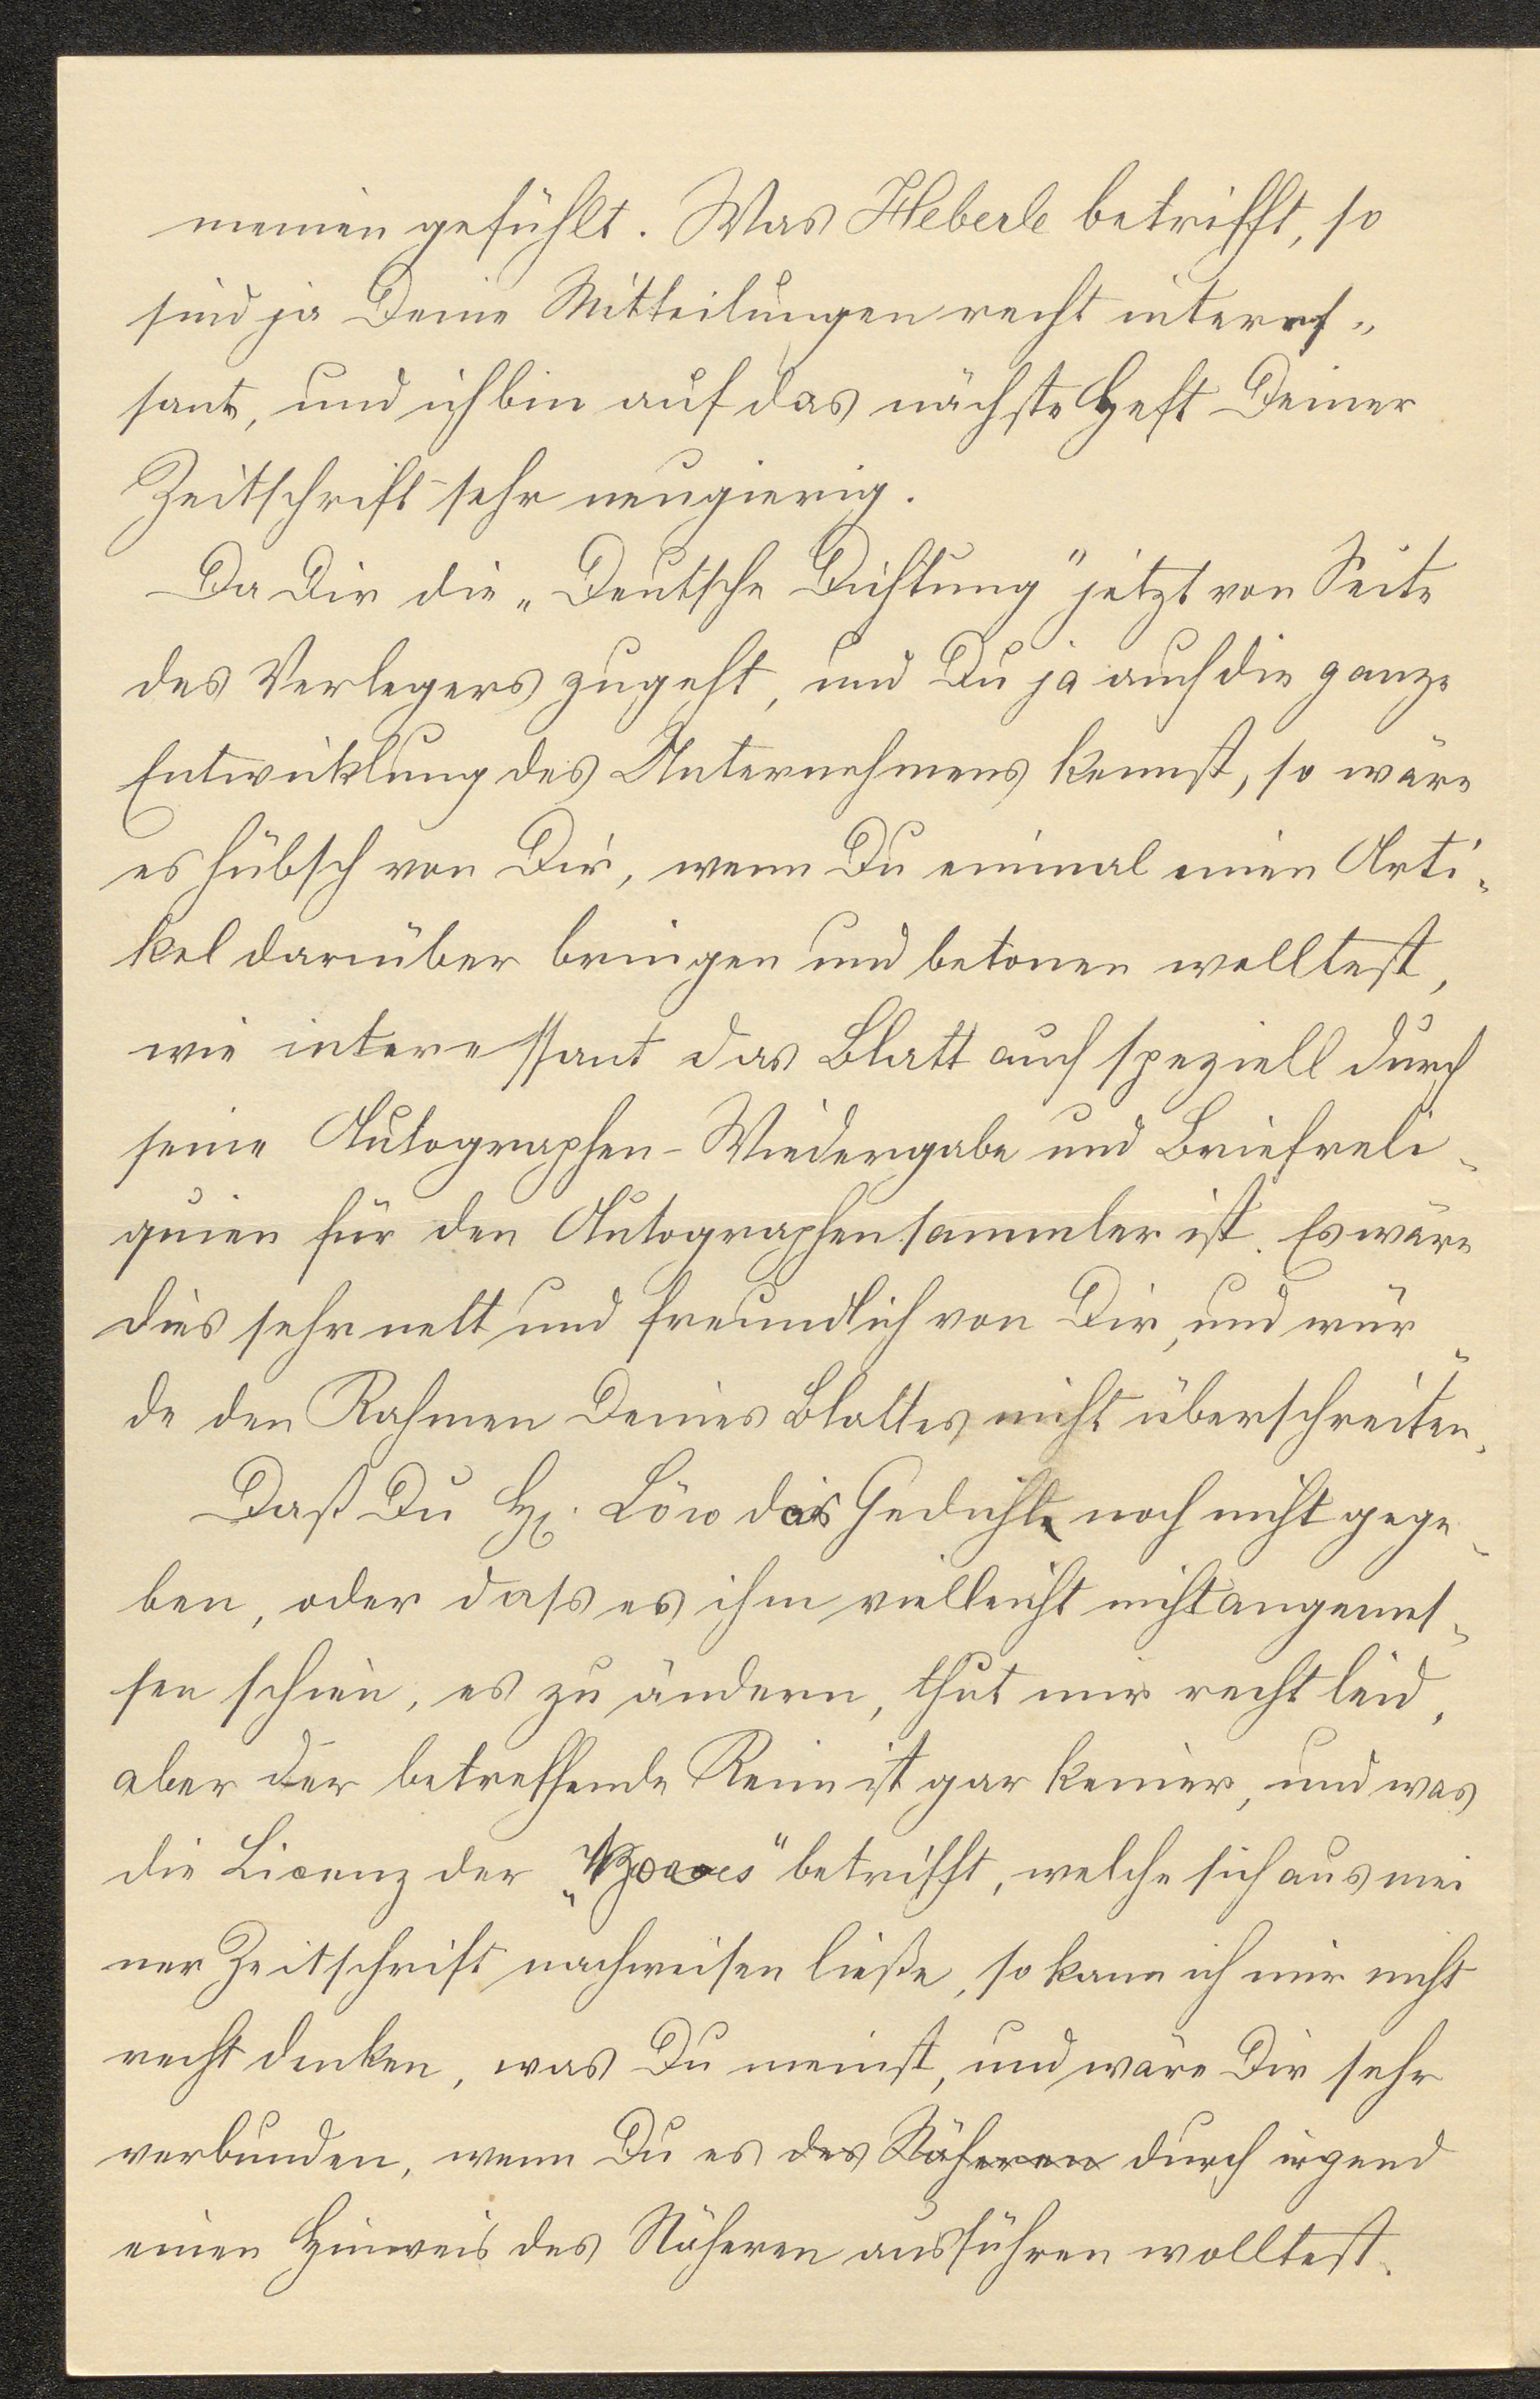 meinen gefühlt. Was Heberle betrifft, so
sind ja Deine Mitteilungen recht interes-
sant, und ich bin auf das nächste Heft Deiner
Zeitschrift sehr neugierig.
Da Dir die „Deutsche Dichtung" jetzt von Seite
des Verlegers zugeht, und Du ja auch die ganze
Entwicklung des Unternehmens kennst, so wäre
es hübsch von Dir, wenn Du einmal einen Arti-
kel darüber bringen und betonen wolltest,
wie interessant das Blatt auch speziell durch
seine Autographen-Wiedergabe und Briefreli-
quien für den Autographensammler ist. Es wäre
dies sehr nett und freundlich von Dir, und wür-
de den Rahmen Deines Blattes nicht überschreiten.
Daß Du H. Löw das Gedicht noch nicht gege-
ben, oder dass es ihm vielleicht nicht angemes-
sen schien, es zu ändern, thut mir recht leid,
aber der betreffende Reim ist gar keiner, und was
die Licenz der betrifft, welche sich aus mei
ner Zeitschrift nachweisen ließe, so kann ich mir nicht
recht denken, was Du meinst, und wäre Dir sehr
verbunden, wenn Du es des Näheren durch irgend
einen Hinweis des Näheren ausführen wolltest.